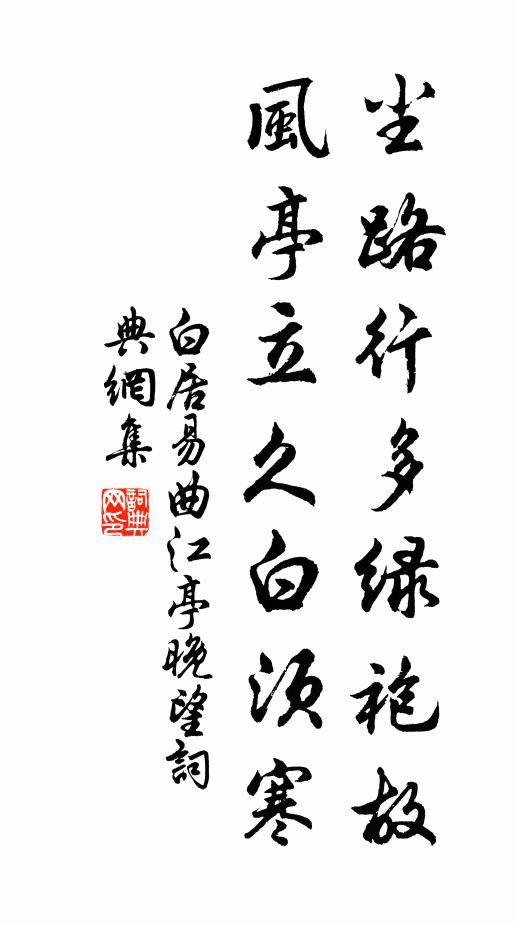 尘路行多绿袍故
風亭立久白须寒
白居易曲江亭晚望詞
典網集
詞典網印